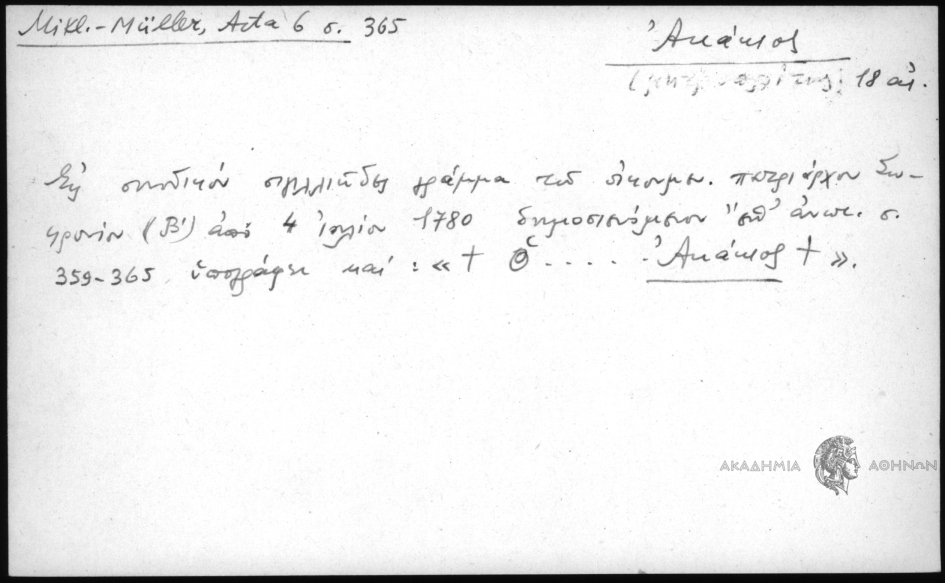 Mikl.-Müller, Acta 6 σ. 365
Ἀκάκιος
(μητροπολίτης) 18 αἰ.
Εἰς συνοδικόν σιγιλλιῶδες γράμμα τοῦ οἰκουμεν. πατριάρχου Σω-
φρονίου (Β') ἀπό 4 ἰουλίου 1780 δημοσιευόμενον ἐπ' ἀνωτ. σ.
359-365 ὑπογράφει καί : « + Ὁ . . . . . . Ἀκάκιος + ».
ΑΚΑΔΗΜΙΑ ΑΘΗΝΩΝ